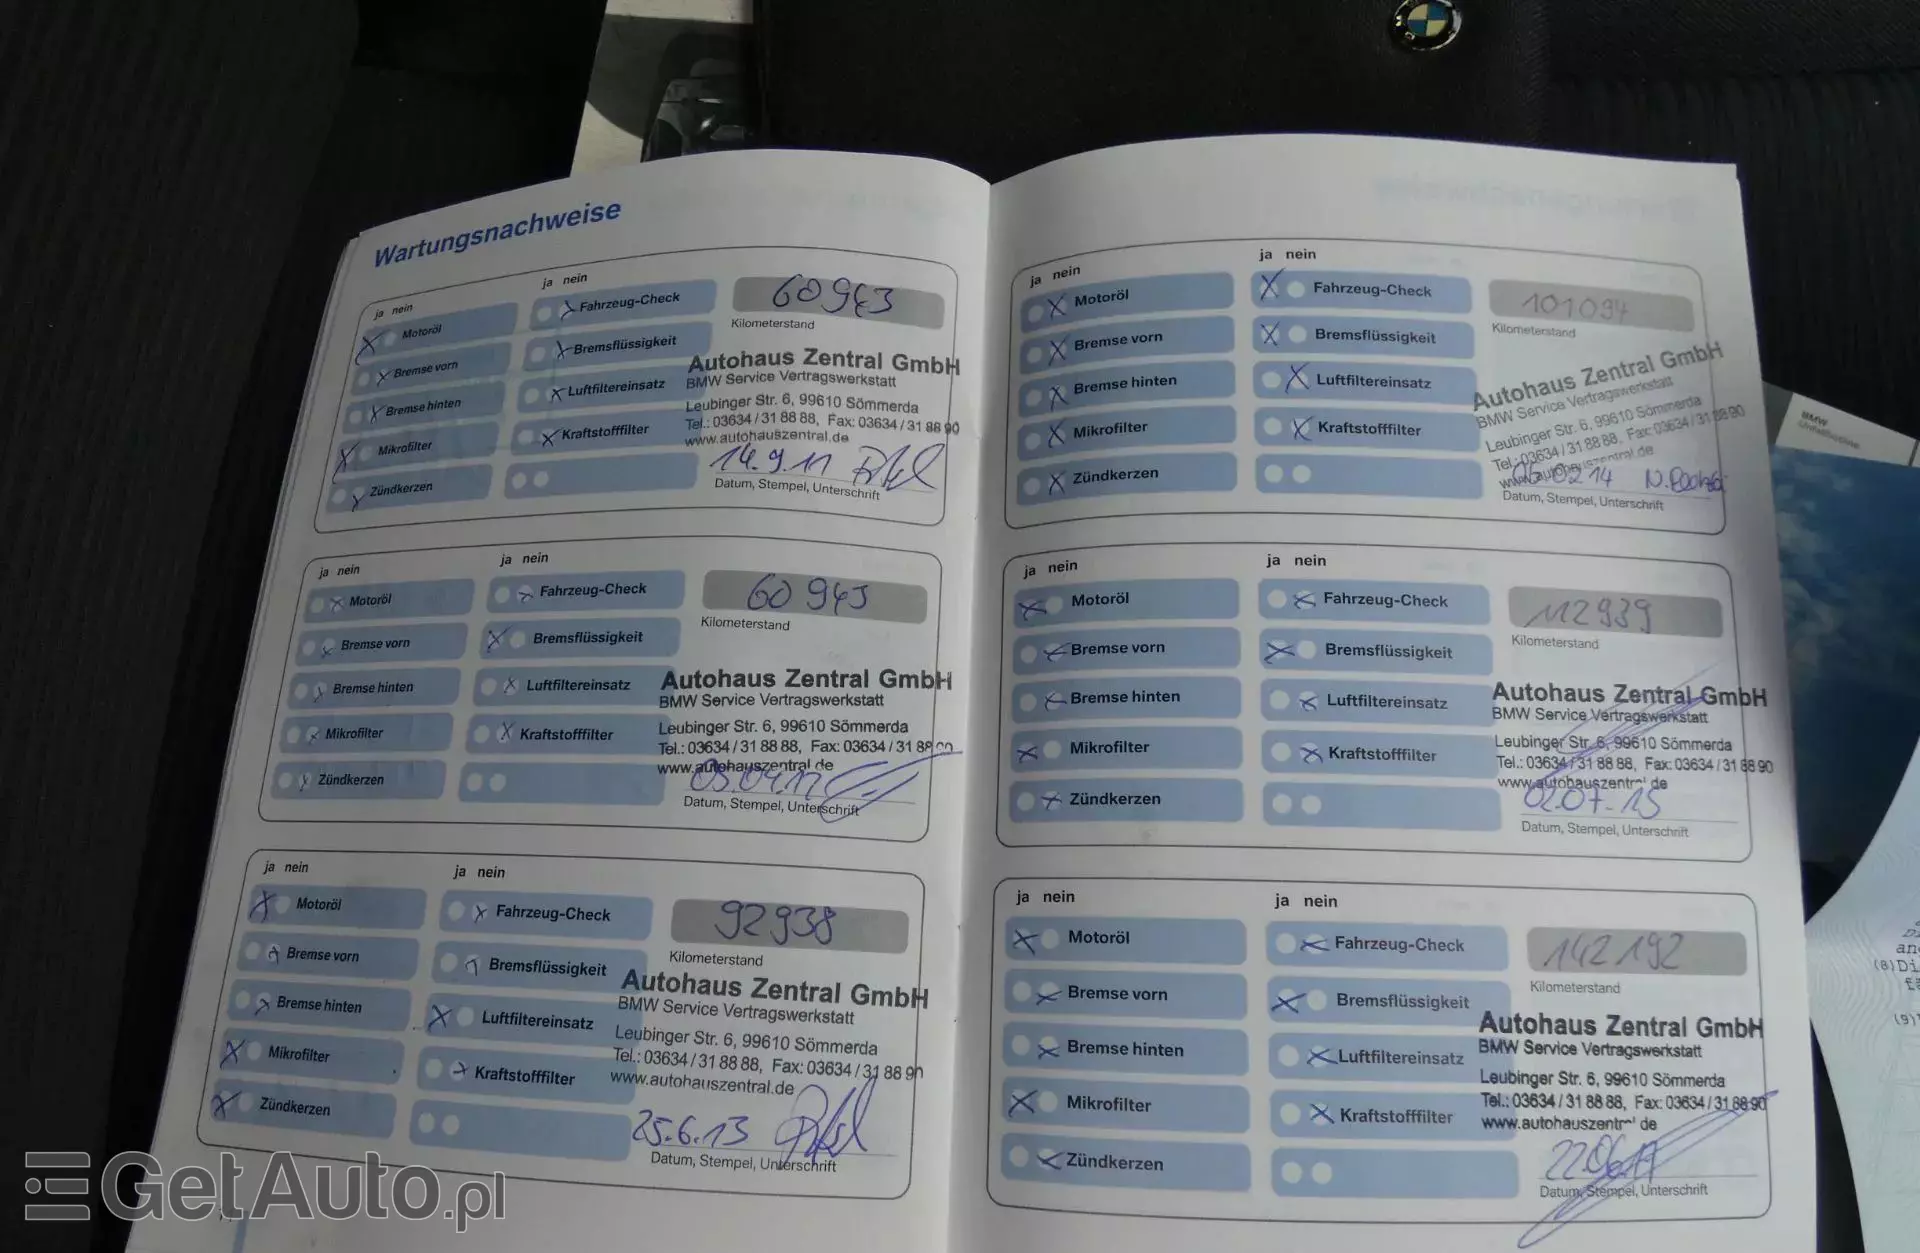 Wartungsnachweise
ja nein
ja nein
Motoröl
Fahrzeug-Check
60943
Bremse vorn
Bremsflüssigkeit
Kilometerstand
Bremse hinten
Luftfiltereinsatz
Autohaus Zentral GmbH
BMW Service Vertragswerkstatt
Mikrofilter
Kraftstofffilter
Leubinger Str. 6, 99610 Sömmerda
Tel.: 03634/31 88 88, Fax: 03634/31 88 90
www.autohauszentral.de
Zündkerzen
14.9.11
Datum, Stempel, Unterschrift
ja nein
ja nein
Motoröl
Fahrzeug-Check
60943
Bremse vorn
Bremsflüssigkeit
Kilometerstand
Bremse hinten
Luftfiltereinsatz
Autohaus Zentral GmbH
BMW Service Vertragswerkstatt
Mikrofilter
Kraftstofffilter
Leubinger Str. 6, 99610 Sömmerda
Tel.: 03634/31 88 88, Fax: 03634/31 88 90
www.autohauszentral.de
Zündkerzen
03.04.12
Datum, Stempel, Unterschrift
ja nein
ja nein
Motoröl
Fahrzeug-Check
92938
Bremse vorn
Bremsflüssigkeit
Kilometerstand
Bremse hinten
Luftfiltereinsatz
Autohaus Zentral GmbH
BMW Service Vertragswerkstatt
Mikrofilter
Kraftstofffilter
Leubinger Str. 6, 99610 Sömmerda
Tel.: 03634/31 88 88, Fax: 03634/31 88 90
www.autohauszentral.de
Zündkerzen
25.6.13
Datum, Stempel, Unterschrift
ja nein
ja nein
Motoröl
Fahrzeug-Check
101094
Bremse vorn
Bremsflüssigkeit
Kilometerstand
Bremse hinten
Luftfiltereinsatz
Autohaus Zentral GmbH
BMW Service Vertragswerkstatt
Mikrofilter
Kraftstofffilter
Leubinger Str. 6, 99610 Sömmerda
Tel.: 03634/31 88 88, Fax: 03634/31 88 90
www.autohauszentral.de
Zündkerzen
Datum, Stempel, Unterschrift
ja nein
ja nein
Motoröl
Fahrzeug-Check
112939
Bremse vorn
Bremsflüssigkeit
Kilometerstand
Bremse hinten
Luftfiltereinsatz
Autohaus Zentral GmbH
BMW Service Vertragswerkstatt
Mikrofilter
Kraftstofffilter
Leubinger Str. 6, 99610 Sömmerda
Tel.: 03634/31 88 88, Fax: 03634/31 88 90
www.autohauszentral.de
Zündkerzen
02.07.15
Datum, Stempel, Unterschrift
ja nein
ja nein
Motoröl
Fahrzeug-Check
142192
Bremse vorn
Bremsflüssigkeit
Kilometerstand
Bremse hinten
Luftfiltereinsatz
Autohaus Zentral GmbH
BMW Service Vertragswerkstatt
Mikrofilter
Kraftstofffilter
Leubinger Str. 6, 99610 Sömmerda
Tel.: 03634/31 88 88, Fax: 03634/31 88 90
www.autohauszentral.de
Zündkerzen
22.06.17
Datum, Stempel, Unterschrift
BMW
GetAuto.pl